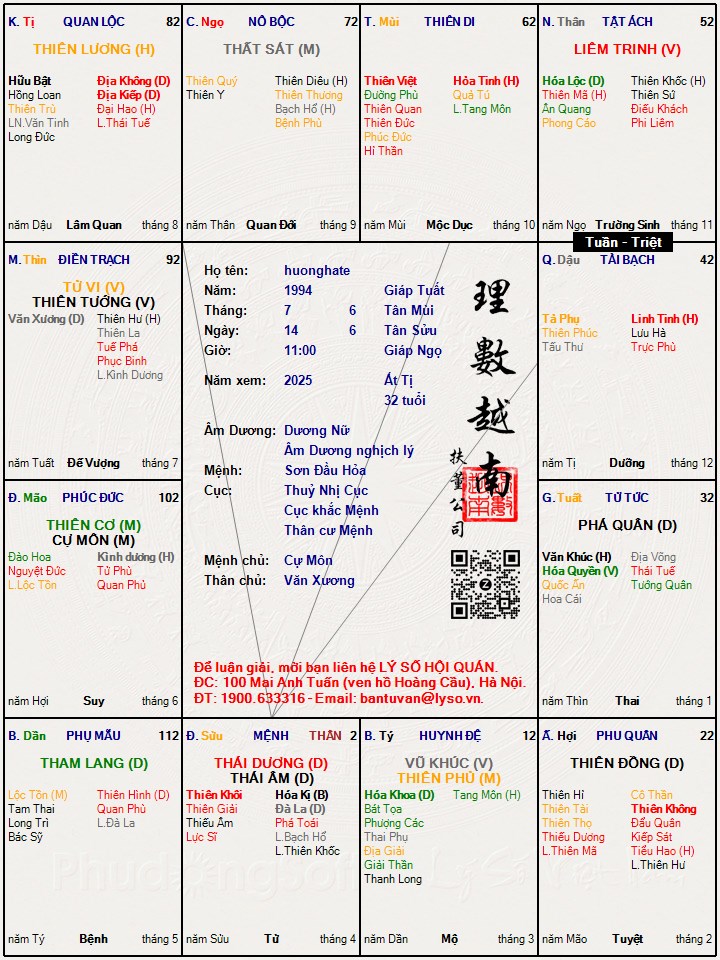 K. Tị QUAN LỘC 82
THIÊN LƯƠNG (H)
Hữu Bật Địa Không (D)
Hồng Loan Địa Kiếp (D)
Thiên Trù Đại Hao (H)
LN.Văn Tinh L.Thái Tuế
Long Đức
năm Dậu Lâm Quan tháng 8
C. Ngọ NÔ BỘC 72
THẤT SÁT (M)
Thiên Quý Thiên Diêu (H)
Thiên Y Thiên Thương
Bạch Hổ (H)
Bệnh Phù
năm Thân Quan Đới tháng 9
T. Mùi THIÊN DI 62
Thiên Việt Hỏa Tinh (H)
Đường Phù Quả Tú
Thiên Quan L.Tang Môn
Thiên Đức
Phúc Đức
Hỉ Thần
năm Mùi Mộc Dục tháng 10
N. Thân TẬT ÁCH 52
LIÊM TRINH (V)
Hóa Lộc (D) Thiên Khốc (H)
Thiên Mã (H) Thiên Sứ
Ân Quang Điếu Khách
Phong Cáo Phi Liêm
năm Ngọ Trường Sinh tháng 11
Tuần - Triệt
M. Thìn ĐIỀN TRẠCH 92
TỬ VI (V)
THIÊN TƯỚNG (V)
Văn Xương (D) Thiên Hư (H)
Thiên La
Tuế Phá
Phục Binh
L.Kình Dương
năm Tuất Đế Vượng tháng 7
Họ tên: huonghate
Năm: 1994 Giáp Tuất
Tháng: 7 6 Tân Mùi
Ngày: 14 6 Tân Sửu
Giờ: 11:00 Giáp Ngọ
Năm xem: 2025 Ất Tị
32 tuổi
Âm Dương: Dương Nữ
Âm Dương nghịch lý
Mệnh: Sơn Đầu Hỏa
Cục: Thuỷ Nhị Cục
Cục khắc Mệnh
Thân cư Mệnh
Mệnh chủ: Cự Môn
Thân chủ: Văn Xương
理數越南
扶董公司
Để luận giải, mời bạn liên hệ LÝ SỐ HỘI QUÁN.
ĐC: 100 Mai Anh Tuấn (ven hồ Hoàng Cầu), Hà Nội.
ĐT: 1900.633316 - Email: bantuvan@lyso.vn.
Q. Dậu TÀI BẠCH 42
Tả Phụ Linh Tinh (H)
Thiên Phúc Lưu Hà
Tấu Thư Trực Phù
năm Tị Dưỡng tháng 12
Đ. Mão PHÚC ĐỨC 102
THIÊN CƠ (M)
CỰ MÔN (M)
Đào Hoa Kình dương (H)
Nguyệt Đức Tử Phù
L.Lộc Tồn Quan Phủ
năm Hợi Suy tháng 6
G. Tuất TỬ TỨC 32
PHÁ QUÂN (D)
Văn Khúc (H) Địa Võng
Hóa Quyền (V) Thái Tuế
Quốc Ấn Tướng Quân
Hoa Cái
năm Thìn Thai tháng 1
B. Dần PHỤ MẪU 112
THAM LANG (D)
Lộc Tồn (M) Thiên Hình (D)
Tam Thai Quan Phù
Long Trì L.Đà La
Bác Sỹ
năm Tý Bệnh tháng 5
Đ. Sửu MỆNH THÂN 2
THÁI DƯƠNG (D)
THÁI ÂM (D)
Thiên Khôi Hóa Kị (B)
Thiên Giải Đà La (D)
Thiếu Âm Phá Toái
Lực Sĩ L.Bạch Hổ
L.Thiên Khốc
năm Sửu Tử tháng 4
B. Tý HUYNH ĐỆ 12
VŨ KHÚC (V)
THIÊN PHỦ (M)
Hóa Khoa (D) Tang Môn (H)
Bát Tọa
Phượng Các
Thai Phụ
Địa Giải
Giải Thần
Thanh Long
năm Dần Mộ tháng 3
Ấ. Hợi PHU QUÂN 22
THIÊN ĐỒNG (D)
Thiên Hỉ Cô Thần
Thiên Tài Thiên Không
Thiên Thọ Đẩu Quân
Thiếu Dương Kiếp Sát
L.Thiên Mã Tiểu Hao (H)
L.Thiên Hư
năm Mão Tuyệt tháng 2